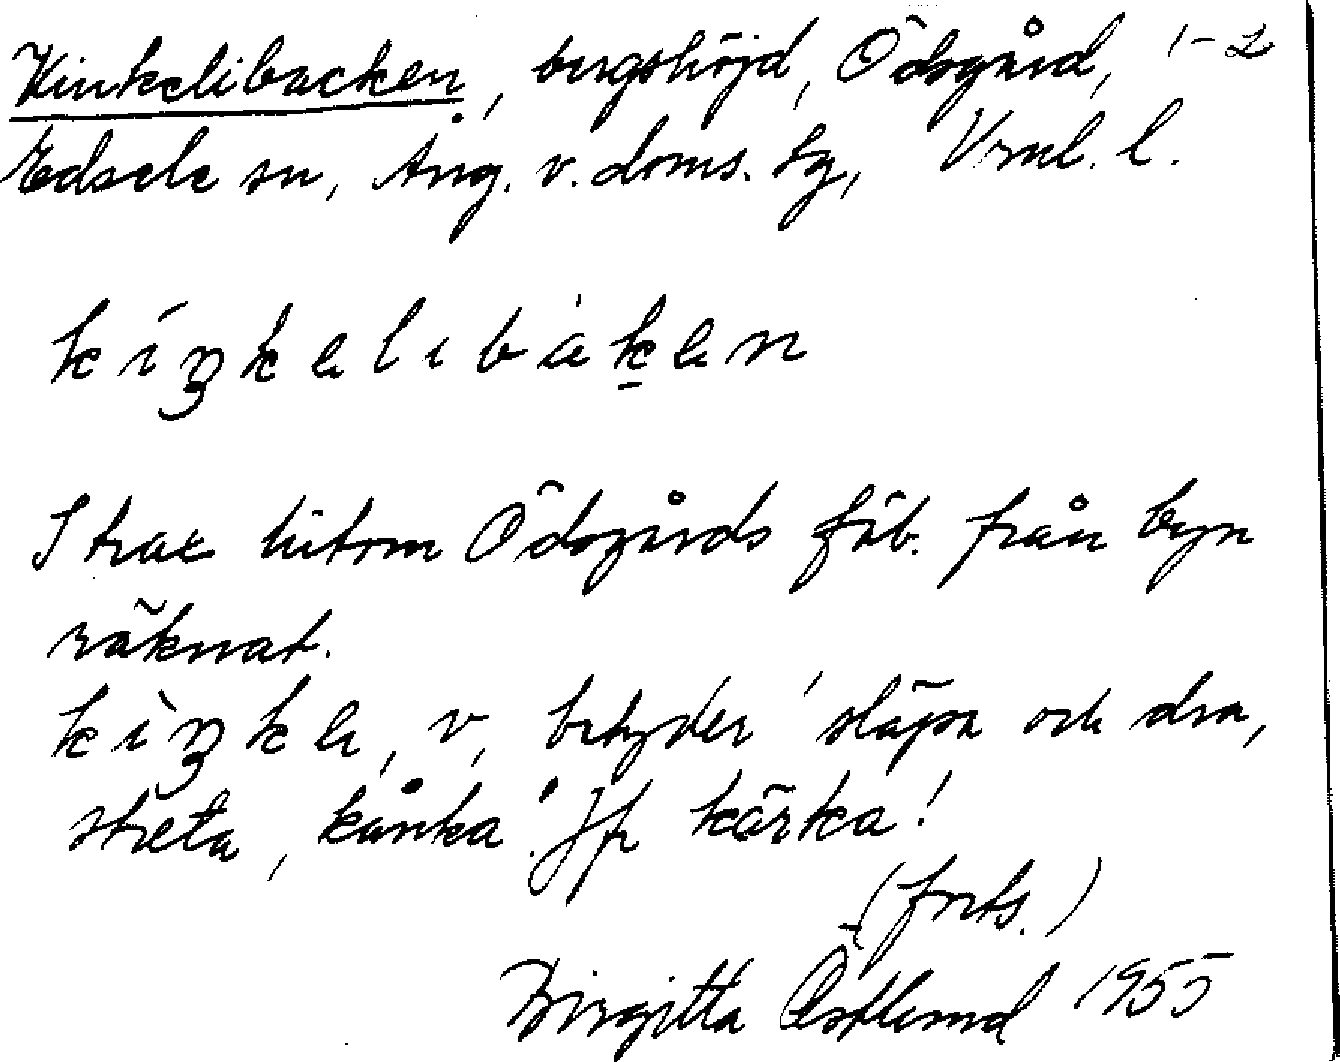 Kinkelibacken, bergshöjd, Ödsgård, 1-2
Edsele sn, Ång. v. doms. sg, Vrnl. l.
kiŋkelibaken
Strax hitom Ödsgårds fäb. från byn
räknat.
kìŋke, v, betyder 'släpa och dra,
streta, kånka'. Jfr kärka!
(forts.)
Birgitta Östlund 1955